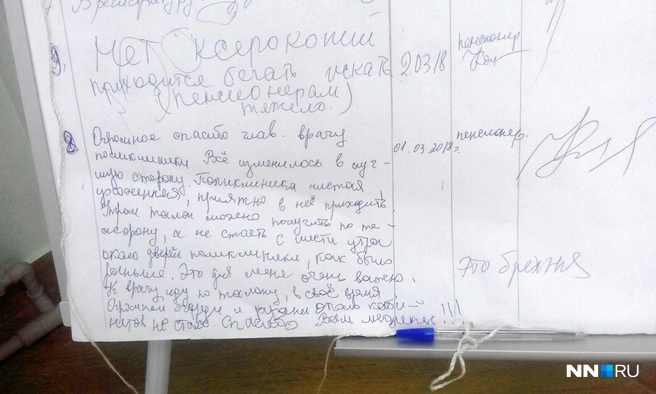 9. Нет ксерокопий 2.03.18 пенсионер
приходится бегать искать
(пенсионерам)
тяжело.
8 Огромное спасибо глав. врачу пенсионер.
поликлиники Всё изменилось в луч- 01.03.2018г.
шую сторону. Поликлиника чистая,
ухоженная, приятно в неё приходить
Утром талон можно получить по те-
лефону, а не стоять с шести утра
около дверей поликлиники, как было
раньше. Это для меня очень важно. Это брехня
К врачу иду по талону, в своё время
Огромной очереди и ругани около каби-
нетов не стало. Спасибо Вам !!!
NN RU